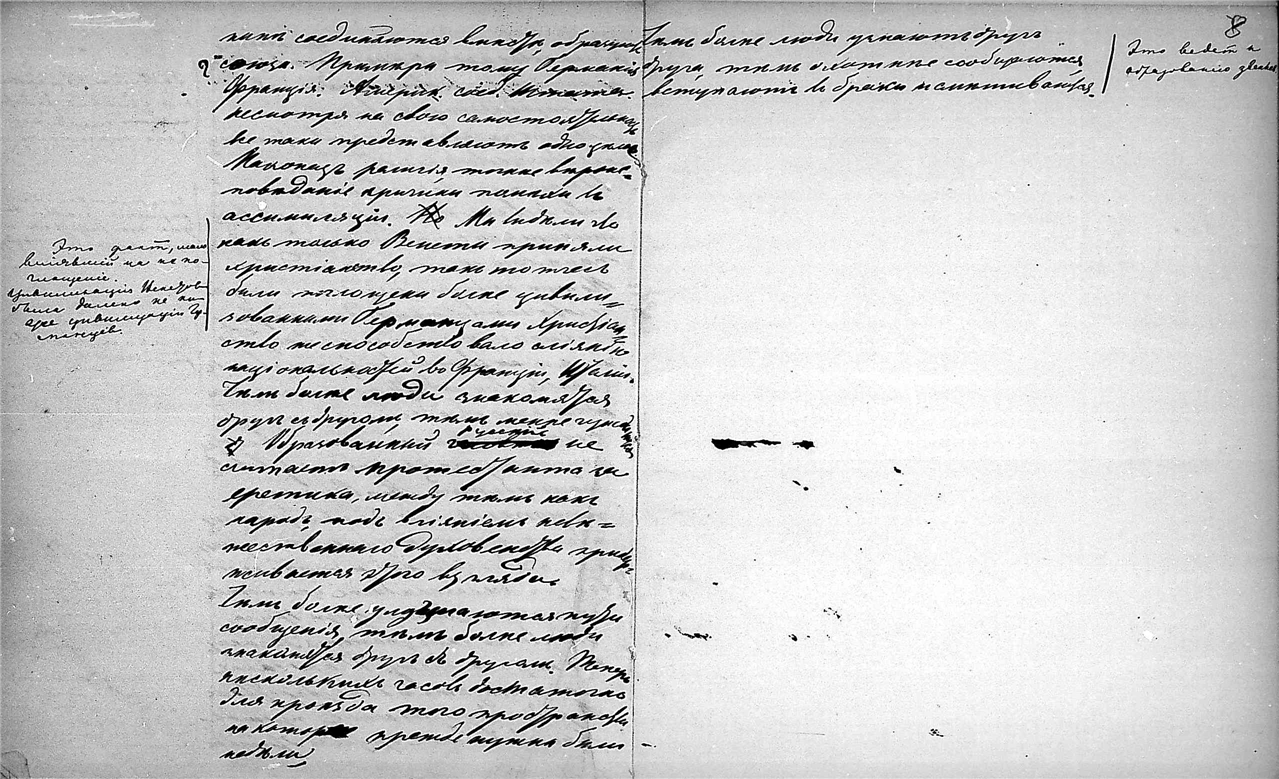 ній соединяются вмѣстѣ, образуютъ
союза. Примѣръ тому Германія
Франція. Америк. соед. штаты.
несмотря на свою самостоятельность
все таки представляютъ одно цѣлое
Наконецъ религія точнѣе вѣроис-
повѣданіе причины помѣхи къ
ассимиляціи. Мы видѣли что
какъ только Венеты приняли
христіанство, такъ тотчасъ
были поглощены болѣе цивили-
зованными Германцами Христіан-
ство не способствовало слиянію
національностей во Франціи, Италіи.
Чѣмъ болѣе люди знакомятся
другъ съ другомъ, тѣмъ менѣе
Образованный русскій не
считаетъ протестанта за
еретика, между тѣмъ какъ
народъ подъ вліяніемъ невѣ-
жественнаго духовенства придер-
живается этого взгляда.
Чѣмъ болѣе улучшаются пути
сообщенія, тѣмъ болѣе люди
знакомятся другъ съ другомъ. Теперь
нѣсколькихъ часовъ достаточно
для проѣзда того пространства
на которое прежде нужны были
недѣли,
Это фактъ, мало
вліявшій на ихъ по-
глощеніе.
Цивилизація Венетовъ
была далеко не ни-
же цивилизаціи Гер-
манцевъ.
8
Чѣмъ болѣе люди узнаютъ другъ
друга, тѣмъ охотнѣе сообщаются
вступаютъ въ браки и смѣшиваются.
Это ведетъ к
образованію